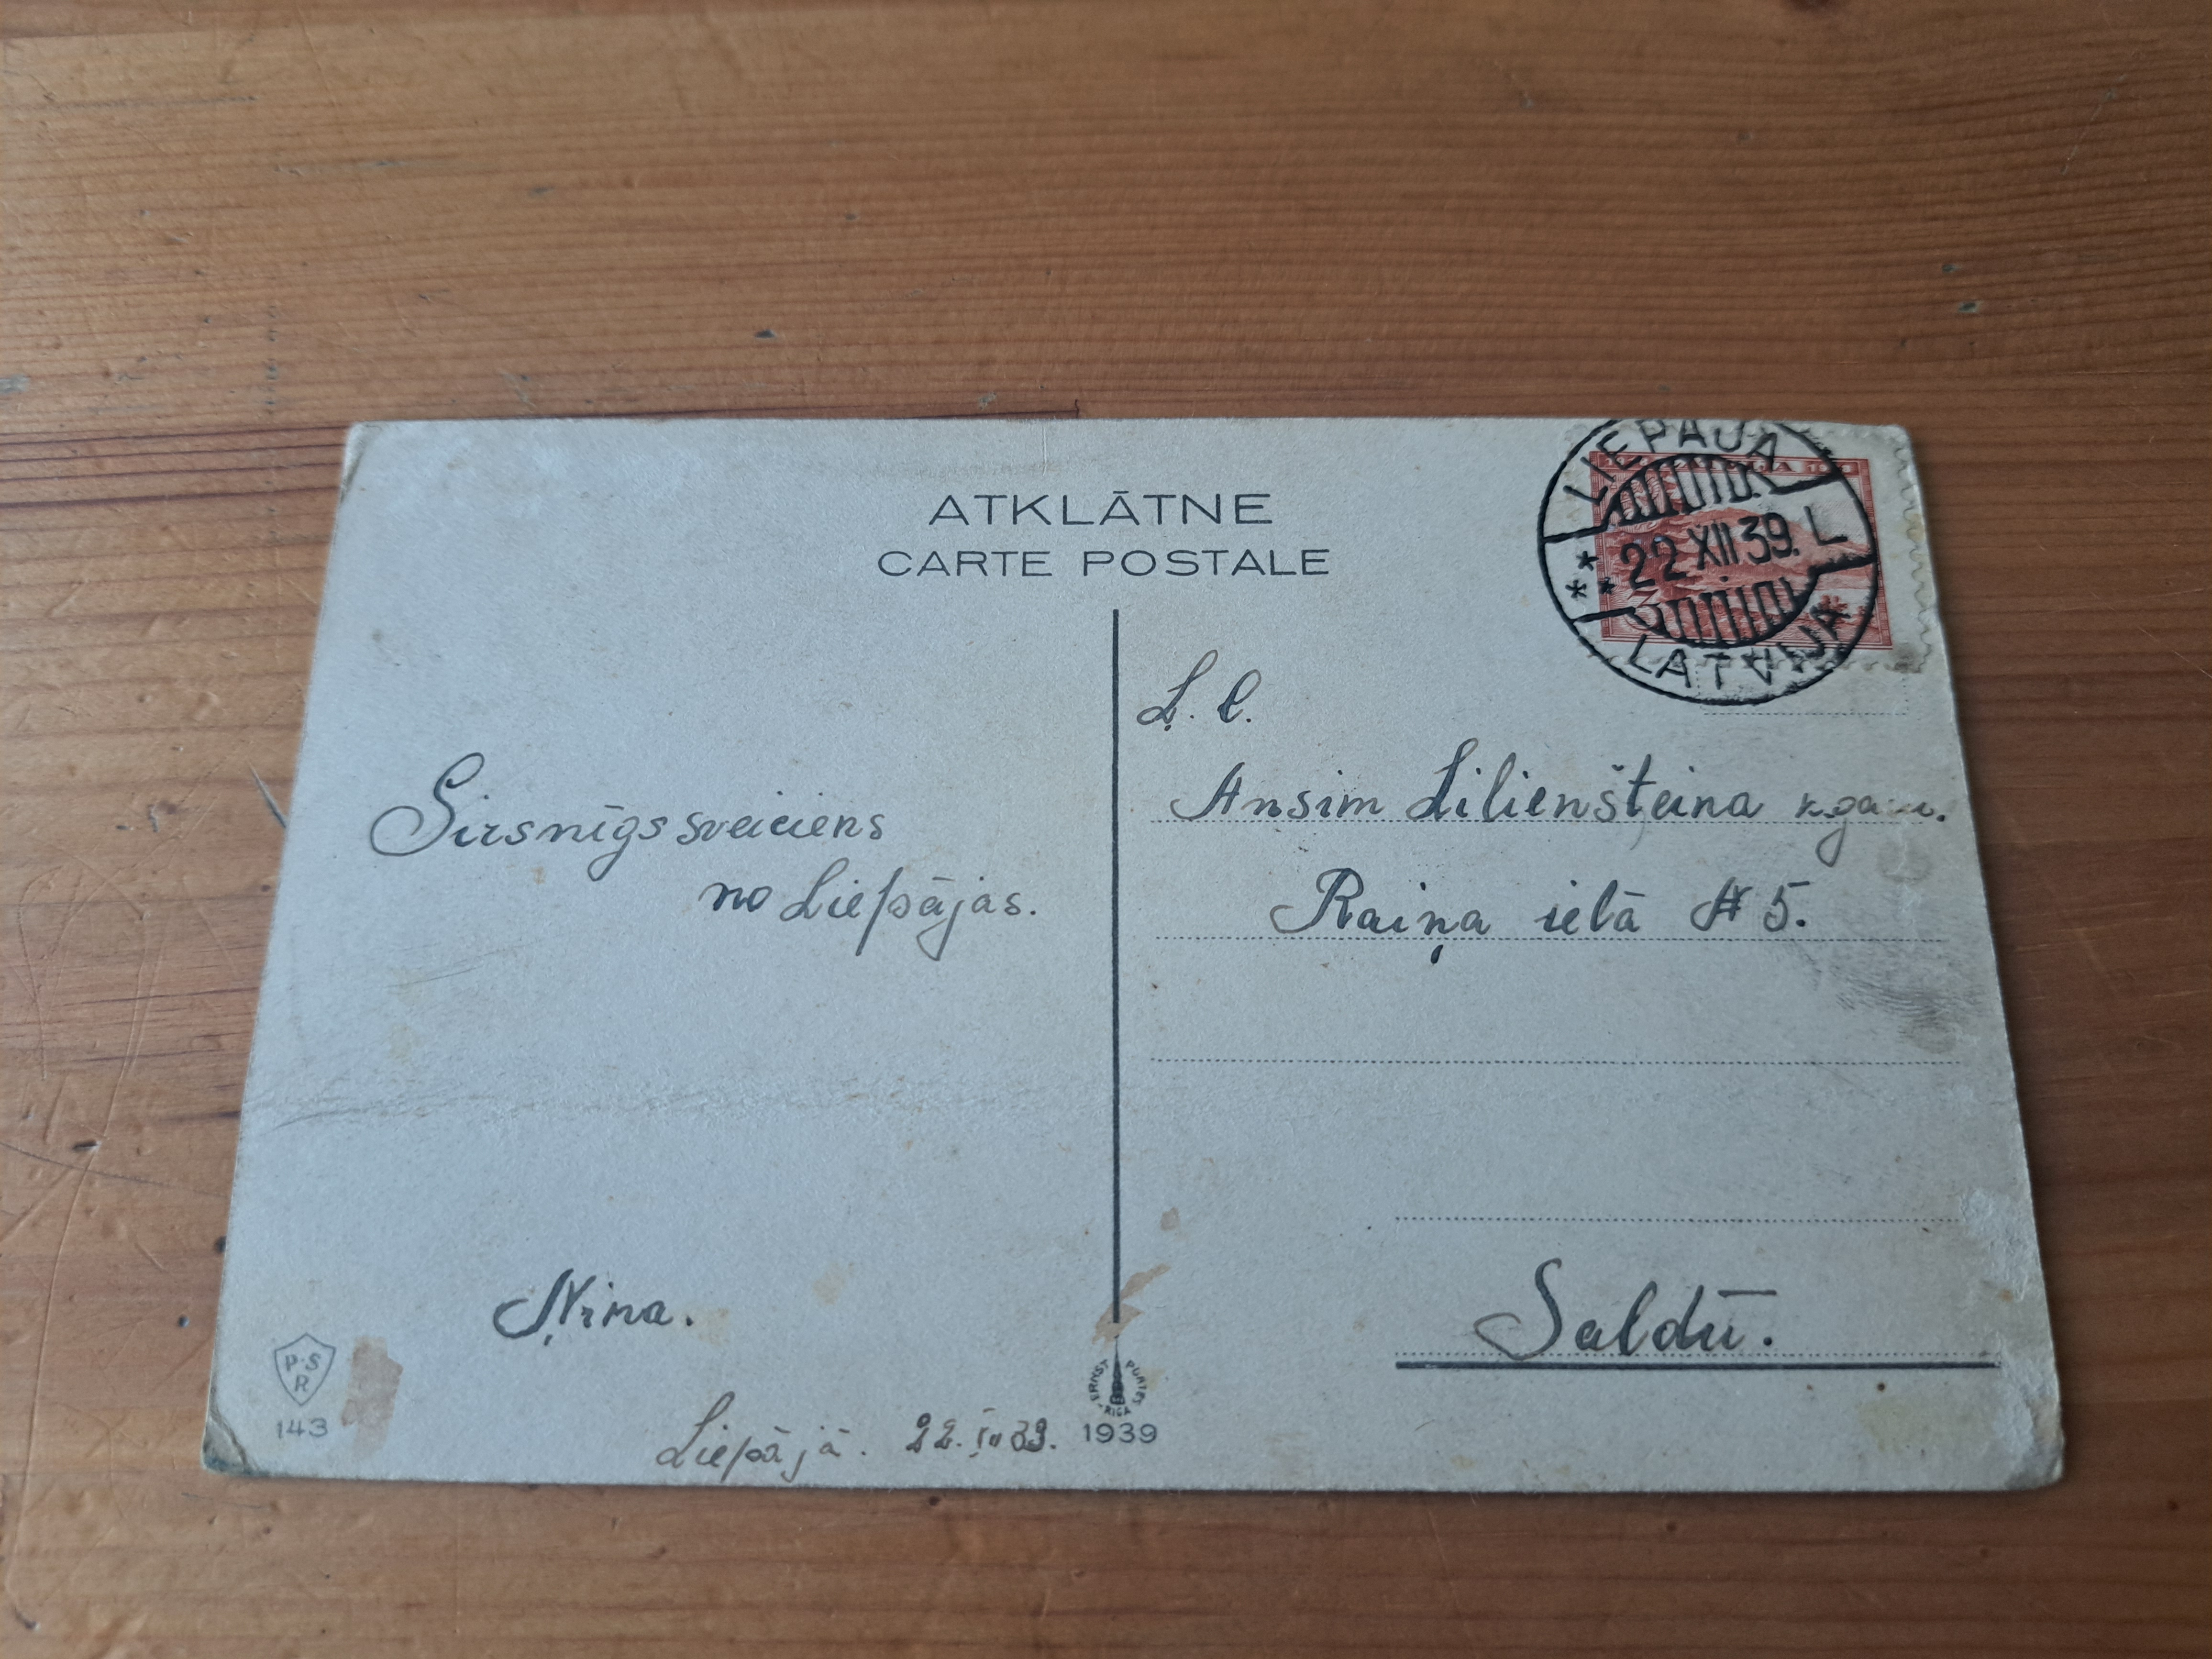 ATKLĀTNE
CARTE POSTALE
LIEPĀJA
22 XII 39. L
LATVIJA
Ļ. c.
Ansim Lilienšteina kgam.
Raiņa ielā № 5.
Saldū.
Sirsnīgs sveiciens
no Liepājas.
Ņina.
Liepājā. 22. 39.
P. S
R
143
ERNST PLATES
RIGA
1939